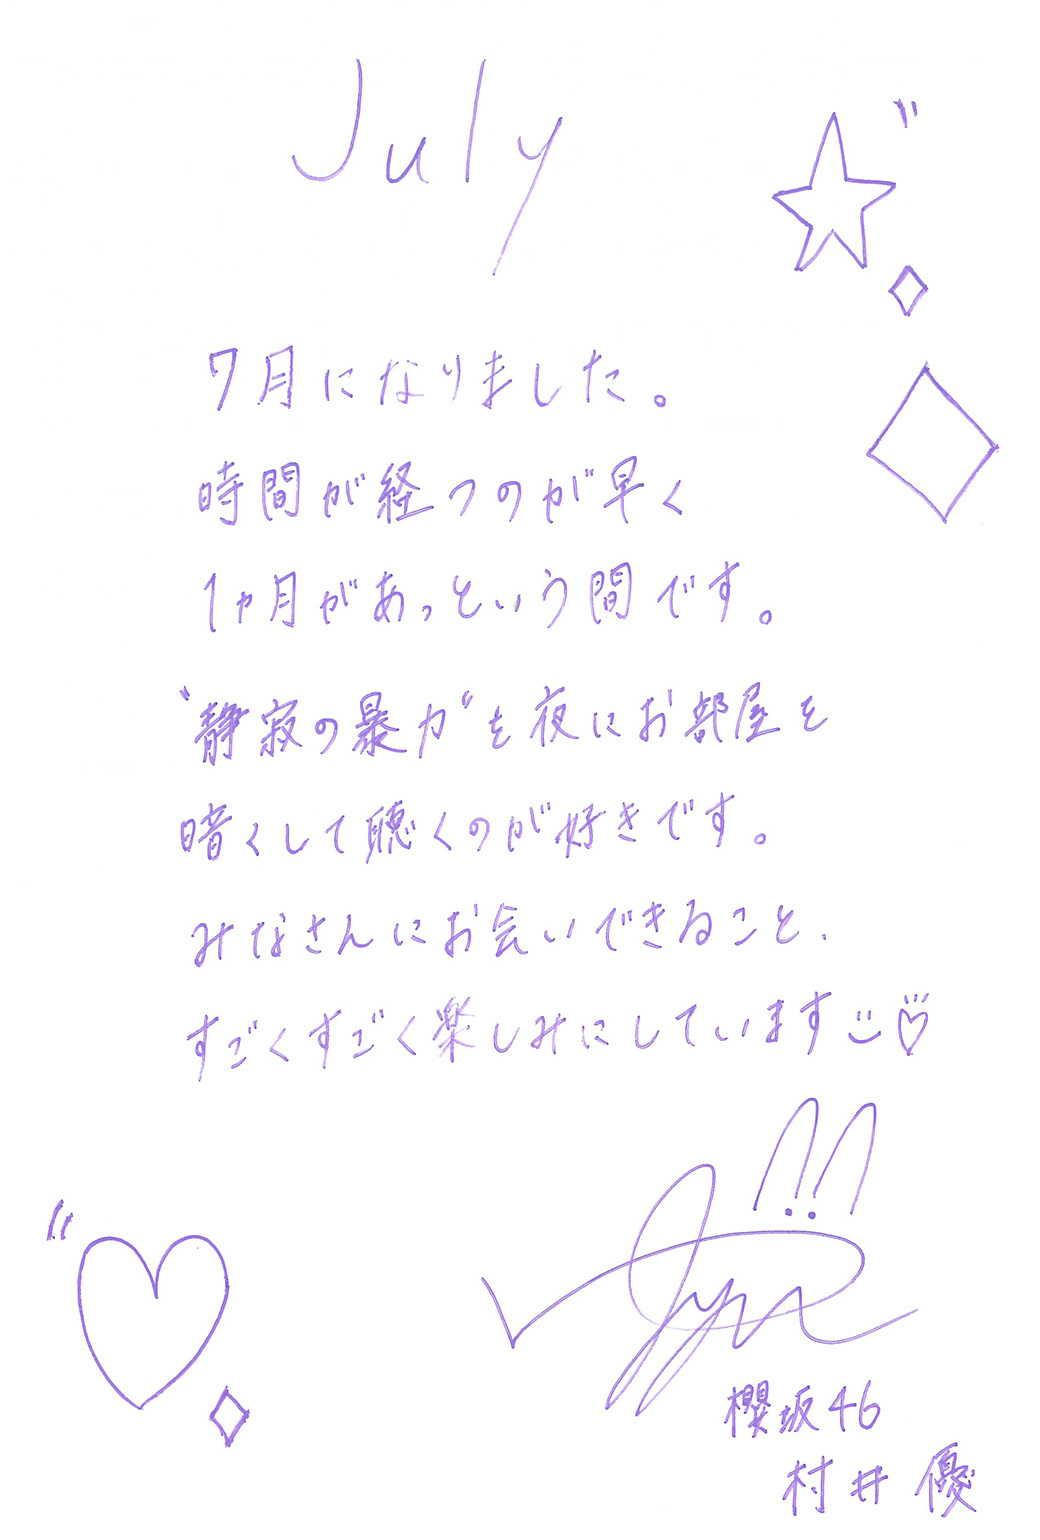 July
7月になりました。
時間が経つのが早く
1ヶ月があっという間です。
"静寂の暴力"を夜にお部屋を
暗くして聴くのが好きです。
みなさんにお会いできること、
すごくすごく楽しみにしています
櫻坂46
村井 優